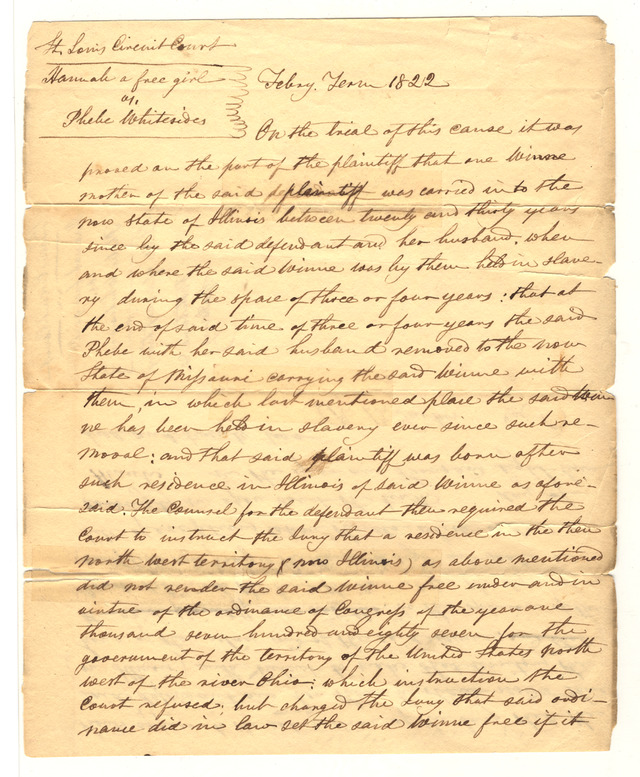 St. Louis Circuit Court
Hannah a free girl
vs.
Phebe Whitesides
Febry. Term 1822
On the trial of this cause it was
proved on the part of the plaintiff that one Winne
mother of the said plaintiff was carried in to the
now State of Illinois between twenty and thirty years
since by the said defendant and her husband. when
and where the said Winne was by them held in slave-
ry during the space of three or four years; that at
the end of said time of three or four years the said
Phebe with her said husband removed to the now
State of Missouri carrying the said Winne with
them, in which last mentioned place the said Win
ne has been held in slavery ever since such re-
moval; and that said plaintiff was born after
such residence in Illinois of said Winne as afore-
said. The Counsel for the defendant then required the
Court to instruct the Jury that a residence in the then
North west territory (now Illinois) as above mentioned
did not render the said Winne free under and in
virtue of the ordinance of Congress of the year one
thousand seven hundred and eighty seven for the
government of the territory of the United States North
west of the river Ohio; which instruction the
Court refused; but charged the Jury that said ordi-
nance did in law set the said Winne free if it